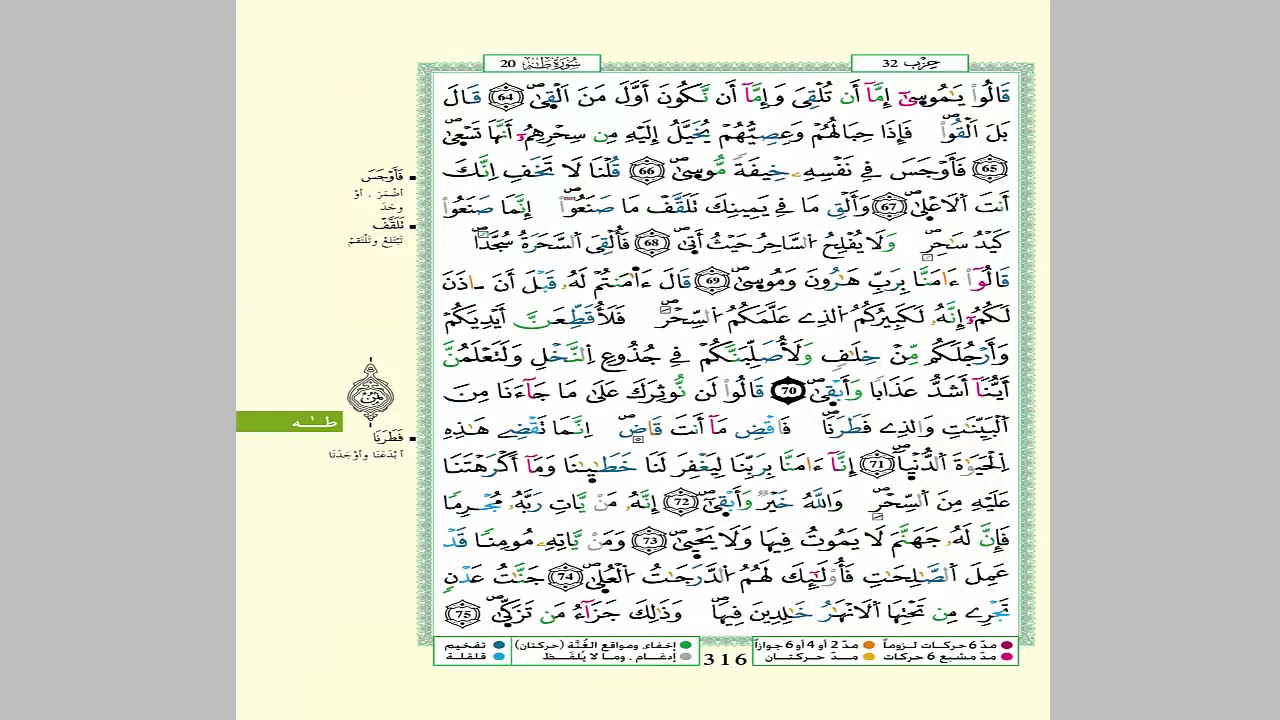 حزب 32
سورة طه 20
قَالُواْ يَٰمُوسۭيٰٓ إِمَّآ أَن تُلْقِيَ وَإِمَّآ أَن نَّكُونَ أَوَّلَ مَنَ اَلْقۭيٰۖ 64 قَالَ
بَلَ اَلْقُواْۖ فَإِذَا حِبَالُهُمْ وَعِصِيُّهُمْ يُخَيَّلُ إِلَيْهِ مِن سِحْرِهِمُۥٓ أَنَّهَا تَسْعۭيٰۖ
65 فَأَوْجَسَ فِے نَفْسِهِۦ خِيفَةٗ مُّوسۭيٰۖ 66 قُلْنَا لَا تَخَفِ اِنَّكَ
أَنتَ اَلَاعْلۭيٰۖ 67 وَأَلْقِ مَا فِے يَمِينِكَ تَلَقَّفْ مَا صَنَعُوٓاْۖ إِنَّمَا صَنَعُواْ
كَيْدُ سَٰحِرٖۖ وَلَا يُفْلِحُ اُلسَّاحِرُ حَيْثُ أَتۭيٰۖ 68 فَأُلْقِيَ اَلسَّحَرَةُ سُجَّداٗۖ
قَالُوٓاْ ءَامَنَّا بِرَبِّ هَٰرُونَ وَمُوسۭيٰۖ 69 قَالَ ءَا۬مَنتُمْ لَهُۥ قَبْلَ أَنَ ـاذَنَ
لَكُمُۥٓ إِنَّهُۥ لَكَبِيرُكُمُ اُلذِے عَلَّمَكُمُ اُلسِّحْرَۖ فَلَأُقَطِّعَنَّ أَيْدِيَكُمْ
وَأَرْجُلَكُم مِّنْ خِلَٰفٖ وَلَأُصَلِّبَنَّكُمْ فِے جُذُوعِ اِلنَّخْلِ وَلَتَعْلَمُنَّ
أَيُّنَآ أَشَدُّ عَذَاباٗ وَأَبْقۭيٰۖ 70 قَالُواْ لَن نُّوثِرَكَ عَلَىٰ مَا جَآءَنَا مِنَ
اَلْبَيِّنَٰتِ وَالذِے فَطَرَنَاۖ فَاقْضِ مَآ أَنتَ قَاضٍۖ اِنَّمَا تَقْضِے هَٰذِهِ
اِلْحَيَوٰةَ اَلدُّنْي۪اۖ 71 إِنَّآ ءَامَنَّا بِرَبِّنَا لِيَغْفِرَ لَنَا خَطَٰيۭـٰنَا وَمَآ أَكْرَهْتَنَا
عَلَيْهِ مِنَ اَلسِّحْرِۖ وَاللَّهُ خَيْرٞ وَأَبْقۭيٰٓۖ 72 إِنَّهُۥ مَنْ يَّاتِ رَبَّهُۥ مُجْرِماٗ
فَإِنَّ لَهُۥ جَهَنَّمَ لَا يَمُوتُ فِيهَا وَلَا يَحْيۭيٰۖ 73 وَمَنْ يَّاتِهِۦ مُومِناٗ قَدْ
عَمِلَ اَلصَّٰلِحَٰتِ فَأُوْلَٰٓئِكَ لَهُمُ اُلدَّرَجَٰتُ اُلْعُلۭيٰ 74 جَنَّٰتُ عَدْنٖ
تَجْرِے مِن تَحْتِهَا اَلَانْهَٰرُ خَٰلِدِينَ فِيهَاۖ وَذَٰلِكَ جَزَآءُ مَن تَزَكّۭيٰۖ 75
فَأَوْجَسَ
أضْمَرَ . أوْ
وجَدَ
تَلَقَّفْ
تَبْتَلِعْ وتَلْتَقِمْ
ثمن
طـٰـه
فَطَرَنَا
أبْدَعَنَا وأوْجَدَنَا
مدّ 6 حركات لـزوماً
مدّ 2 أو 4 أو 6 جوازاً
مدّ مشبع 6 حركات
مـدّ حركتـان
316
إخفاء، ومواقع الغُنَّة (حركتان)
تفخيم
إدغـام . ومـا لا يُلفـظ
قلقلـة